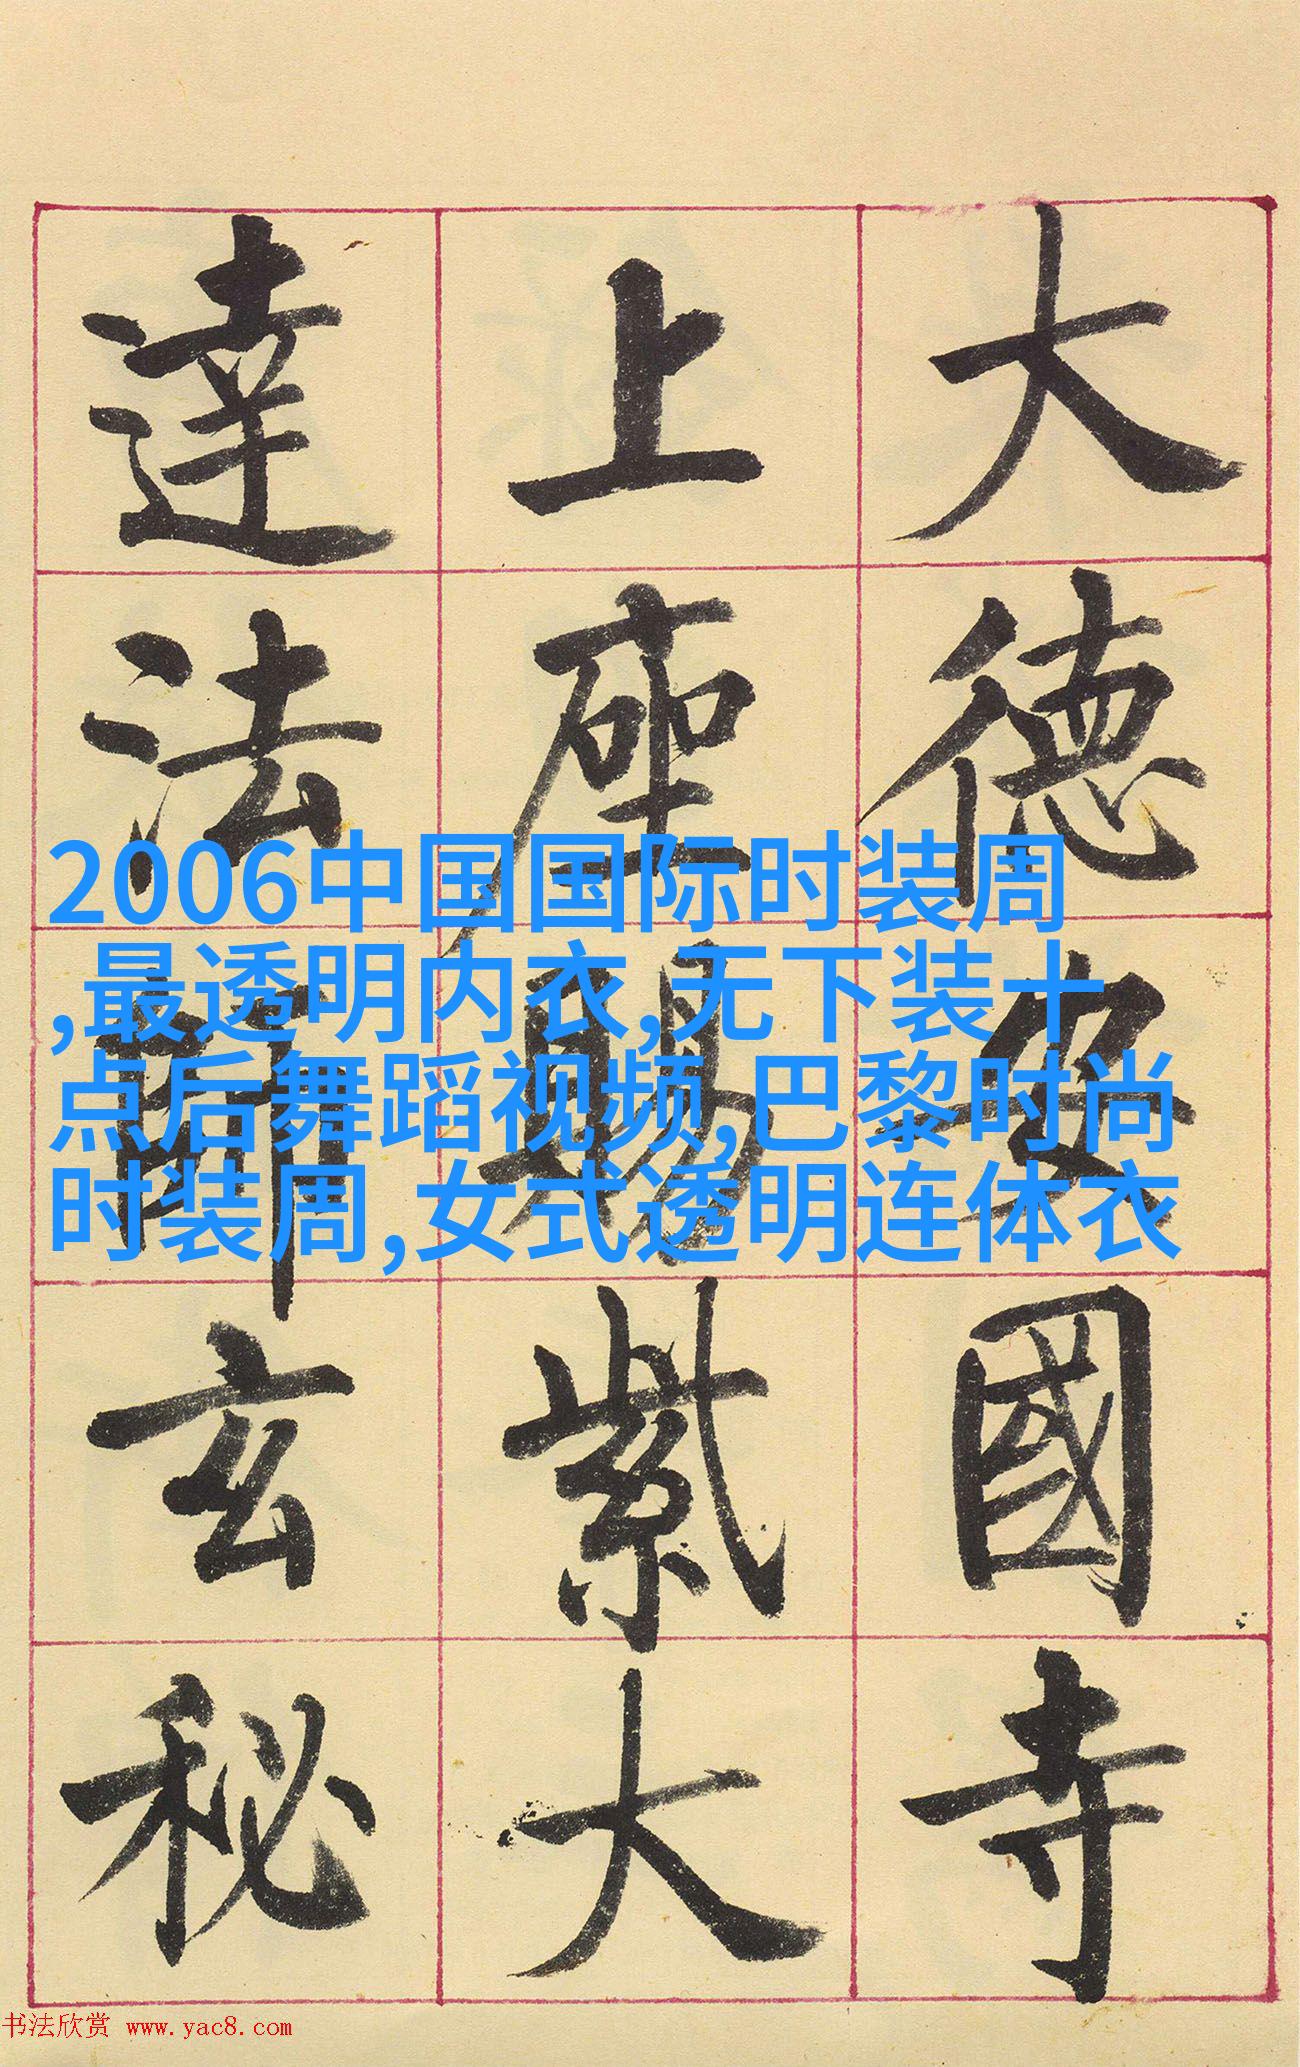 大德安國寺
上座賜紫大
達法師玄秘
2006中国国际时装周
,最透明内衣,无下装十
点后舞蹈视频,巴黎时尚
时装周,女式透明连体衣
书法欣赏 www.yac8.com